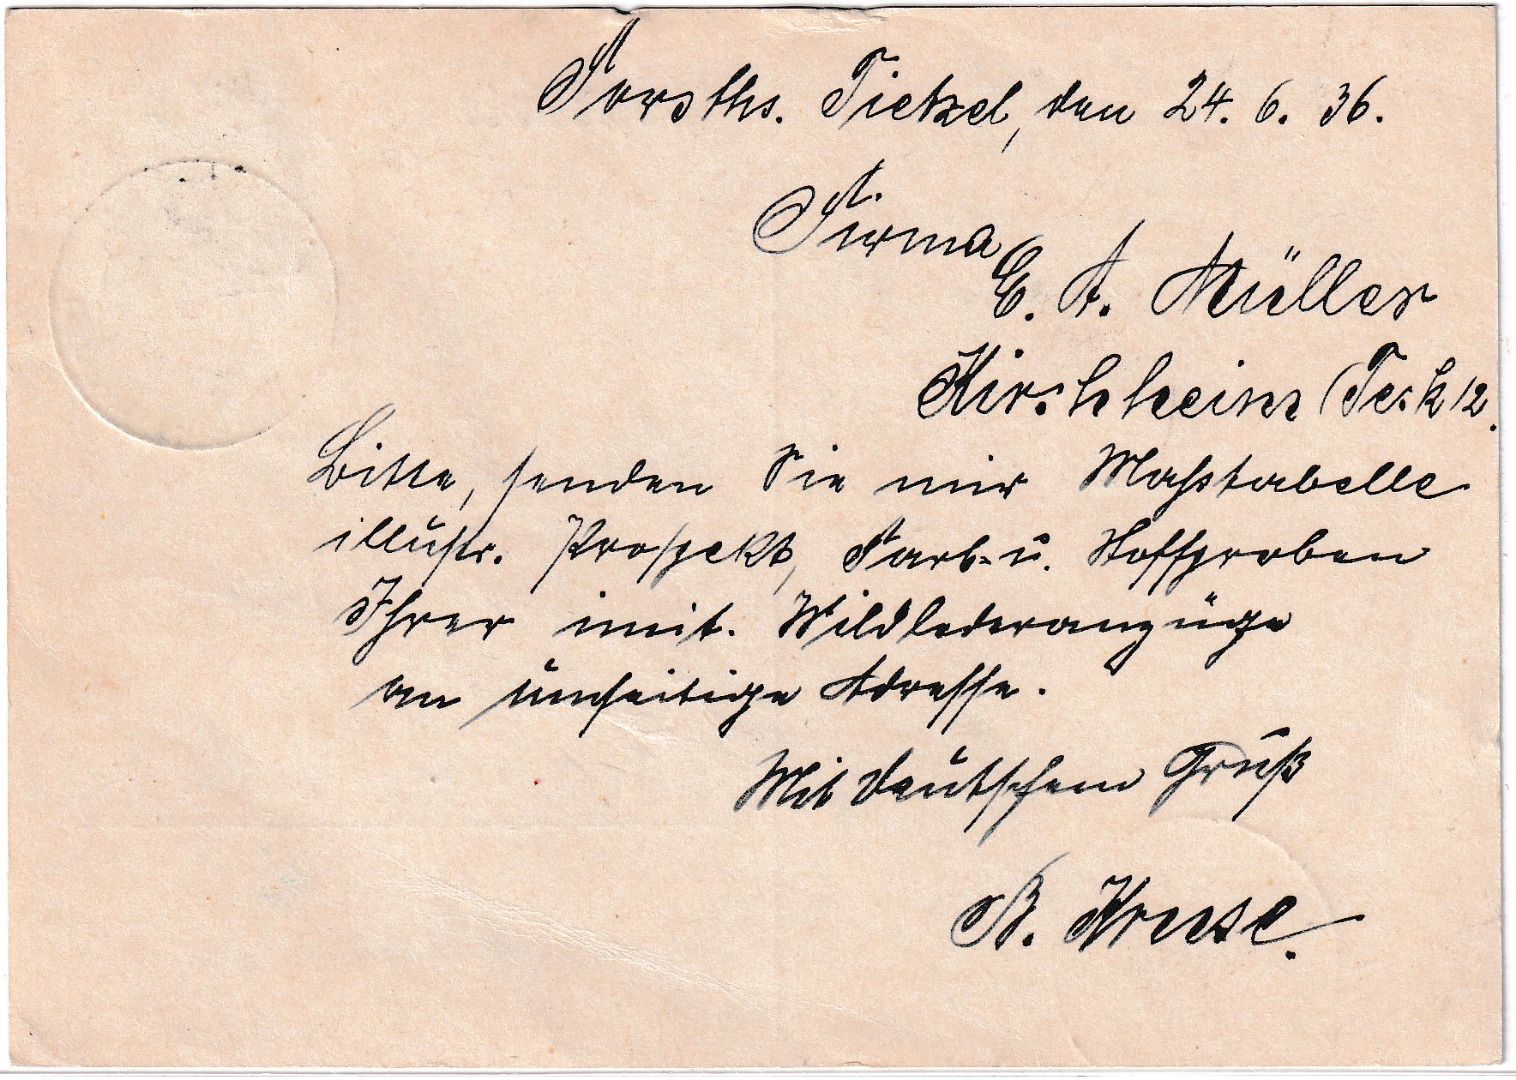 Forsths. Tietzel, den 24. 6. 36.
Firma
E. A. Müller
Kirchheim (Teck 12.
Bitte, senden Sie mir Maßtabelle
illustr. Prospekt, Farb- u. Stoffproben
Ihrer imit. Wildlederanzüge
an umseitige Adresse.
Mit deutschem Gruß
B. Kruse.